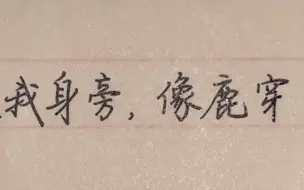 我身旁，像鹿穿